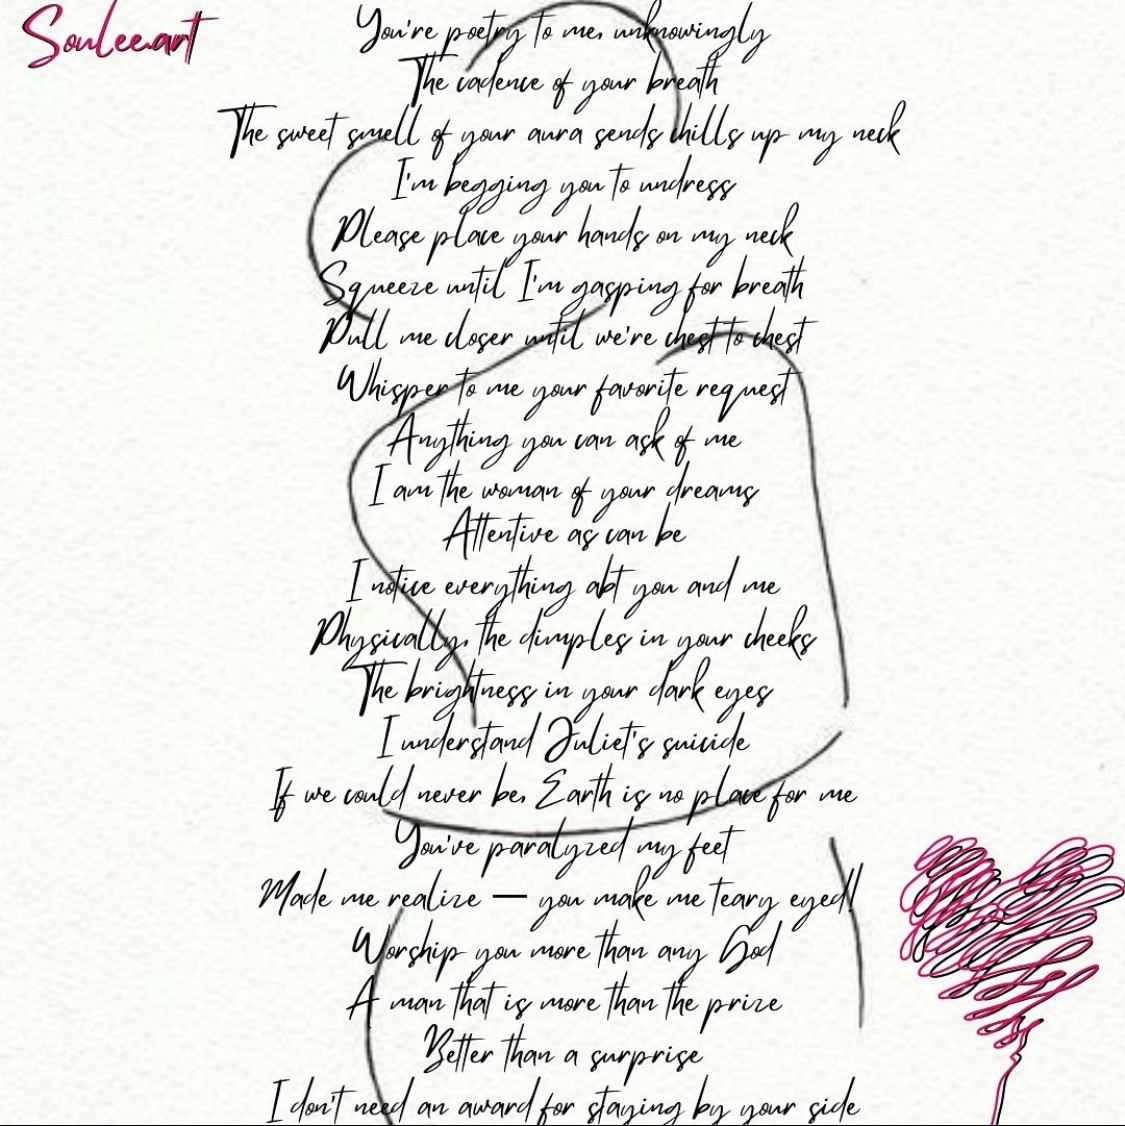 Soulee.art
You're poetry to me, unknowingly
The cadence of your breath
The sweet smell of your aura sends chills up my neck
I'm begging you to undress
Please place your hands on my neck
Squeeze until I'm gasping for breath
Pull me closer until we're chest to chest
Whisper to me your favorite request
Anything you can ask of me
I am the woman of your dreams
Attentive as can be
I notice everything abt you and me
Physically, the dimples in your cheeks
The brightness in your dark eyes
I understand Juliet's suicide
If we could never be, Earth is no place for me
You've paralyzed my feet
Made me realize — you make me teary eyed!
Worship you more than any God
A man that is more than the prize
Better than a surprise
I don't need an award for staying by your side